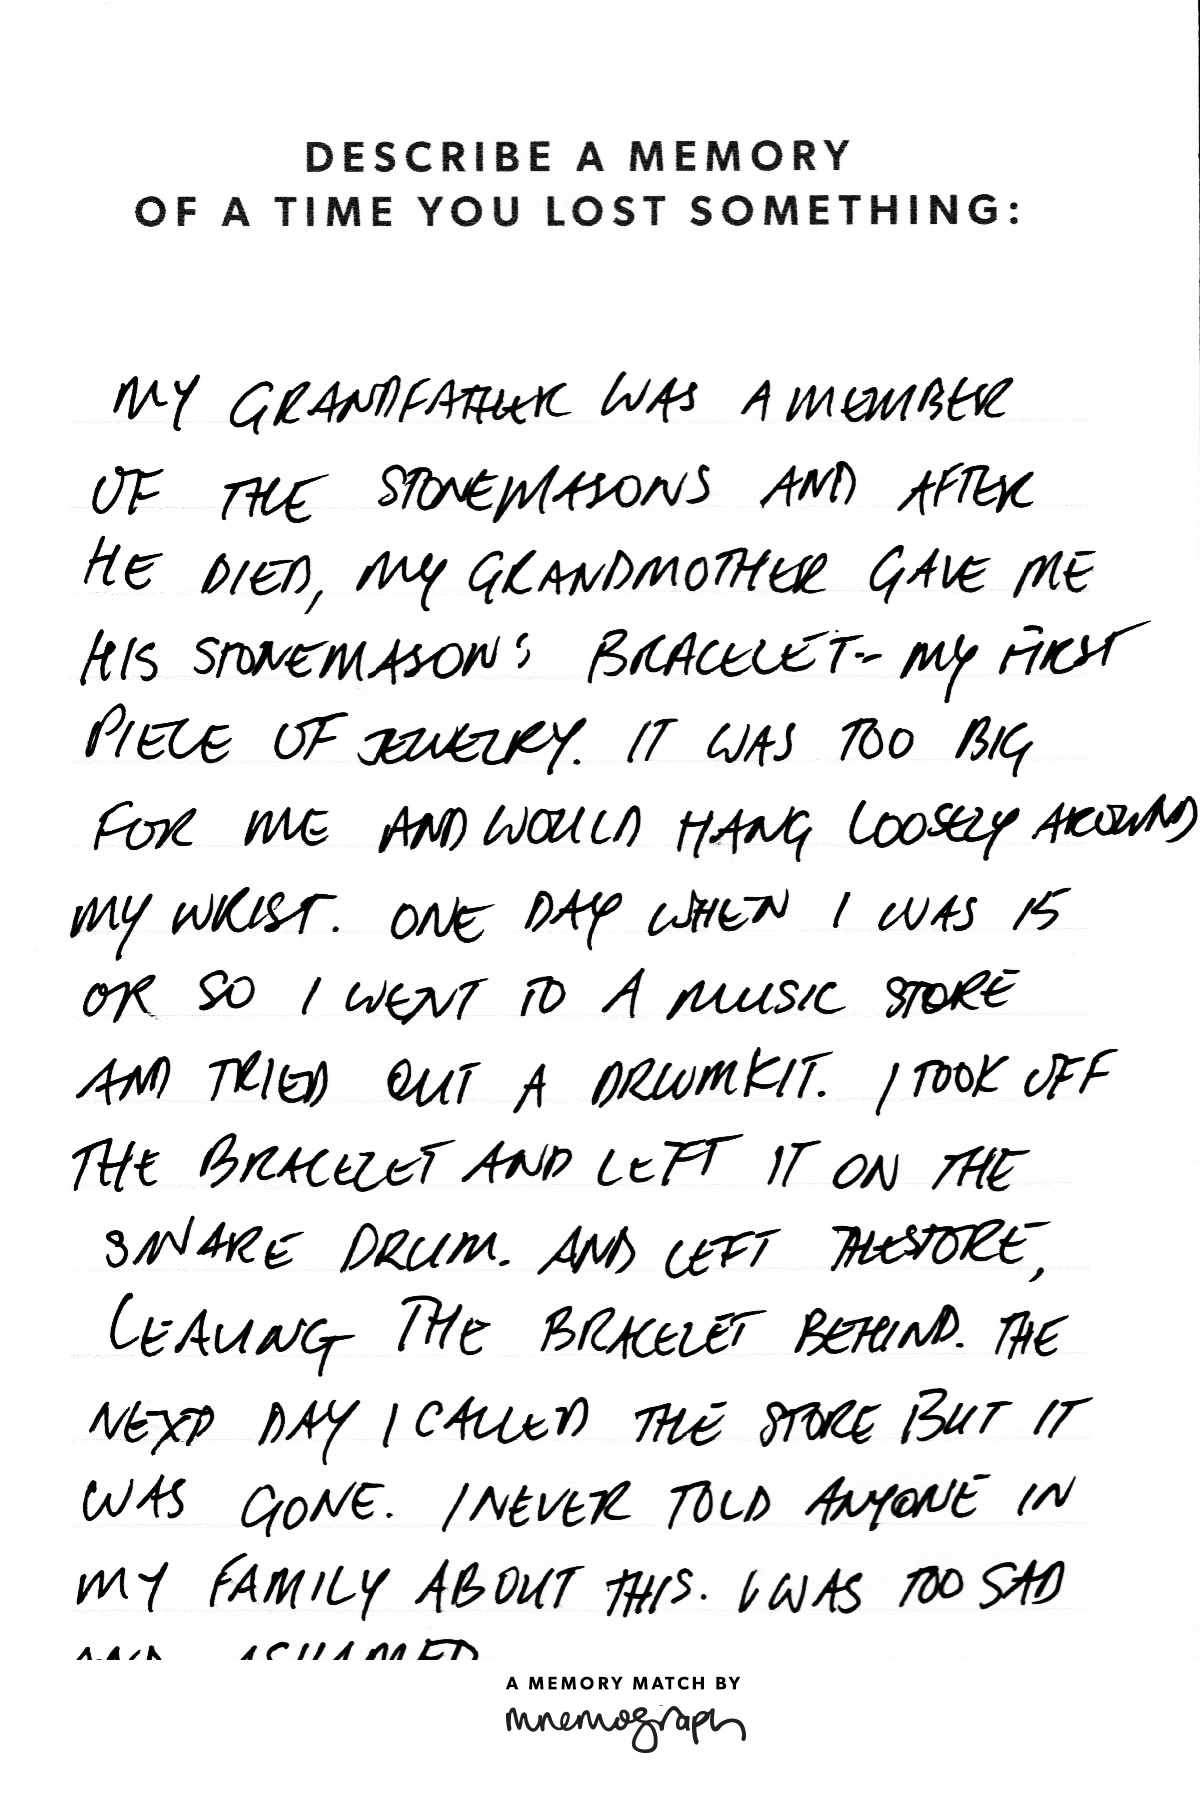 DESCRIBE A MEMORY
OF A TIME YOU LOST SOMETHING:
MY GRANDFATHER WAS A MEMBER
OF THE STONEMASONS AND AFTER
HE DIED, MY GRANDMOTHER GAVE ME
HIS STONEMASON'S BRACELET-- MY FIRST
PIECE OF JEWELRY. IT WAS TOO BIG
FOR ME AND WOULD HANG LOOSELY AROUND
MY WRIST. ONE DAY WHEN I WAS 15
OR SO I WENT TO A MUSIC STORE
AND TRIED OUT A DRUMKIT. I TOOK OFF
THE BRACELET AND LEFT IT ON THE
SNARE DRUM. AND LEFT THE STORE,
LEAVING THE BRACELET BEHIND. THE
NEXT DAY I CALLED THE STORE BUT IT
WAS GONE. I NEVER TOLD ANYONE IN
MY FAMILY ABOUT THIS. I WAS TOO SAD
AND ASHAMED
A MEMORY MATCH BY
mnemograph